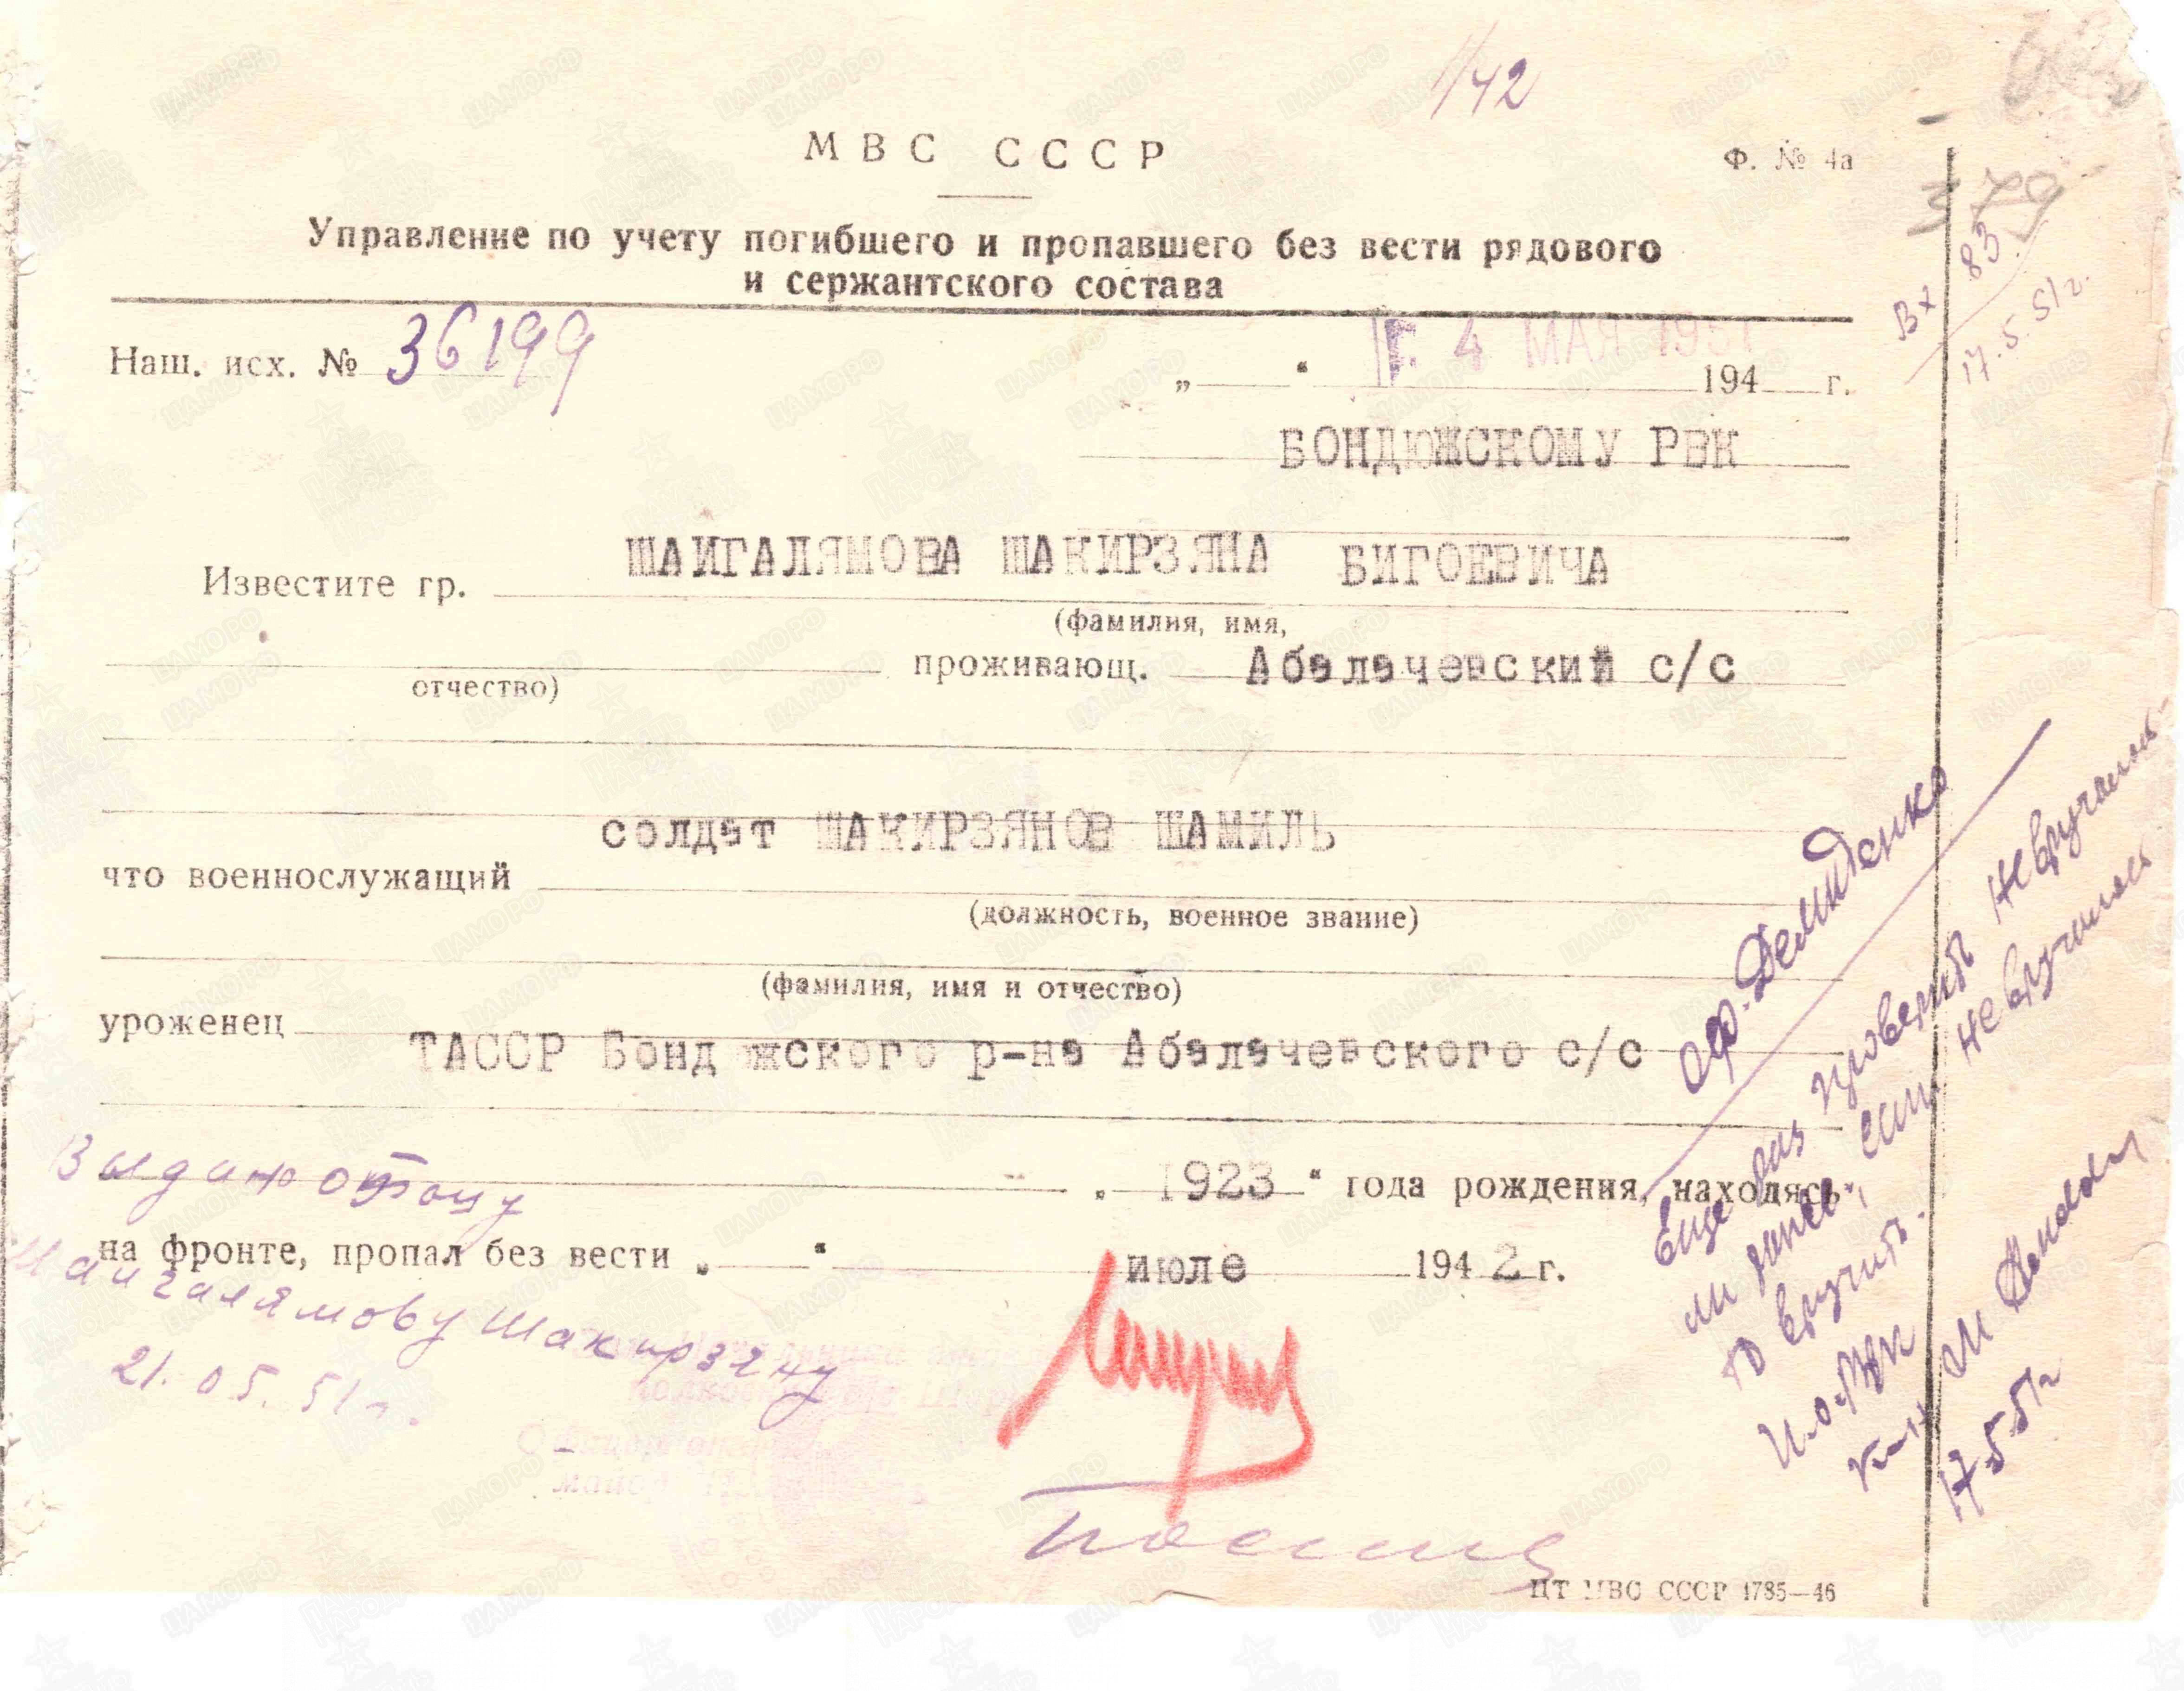 1/42
МВС СССР
Ф. № 4а
Управление по учету погибшего и пропавшего без вести рядового
и сержантского состава
Наш. исх. № 36199
4 МАЯ 1951
„ “ 194 г.
Вх 83
17.5.51г.
БОНДЮЖСКОМУ РВК
Известите гр. ШАИГАЛЯМОВА ШАКИРЗЯНА БИГОЕВИЧА
(фамилия, имя,
отчество)
проживающ. Абалачевский с/с
солдат ШАКИРЗЯНОВ ШАМИЛЬ
что военнослужащий
(должность, военное звание)
(фамилия, имя и отчество)
уроженец ТАССР Бонд жского р-на Абалачевского с/с
„ 1923 “ года рождения, находясь
на фронте, пропал без вести „ “ июле 1942 г.
Выдано отцу
Шаигалямову Шакирзяну
21.05.51г.
оф. Демиденко
Еще раз проверить не вручалось
ли ранее, если не вручалось
то вручить.
И.о. РВК
17.5.51г
ЦТ МВС СССР 1785—46